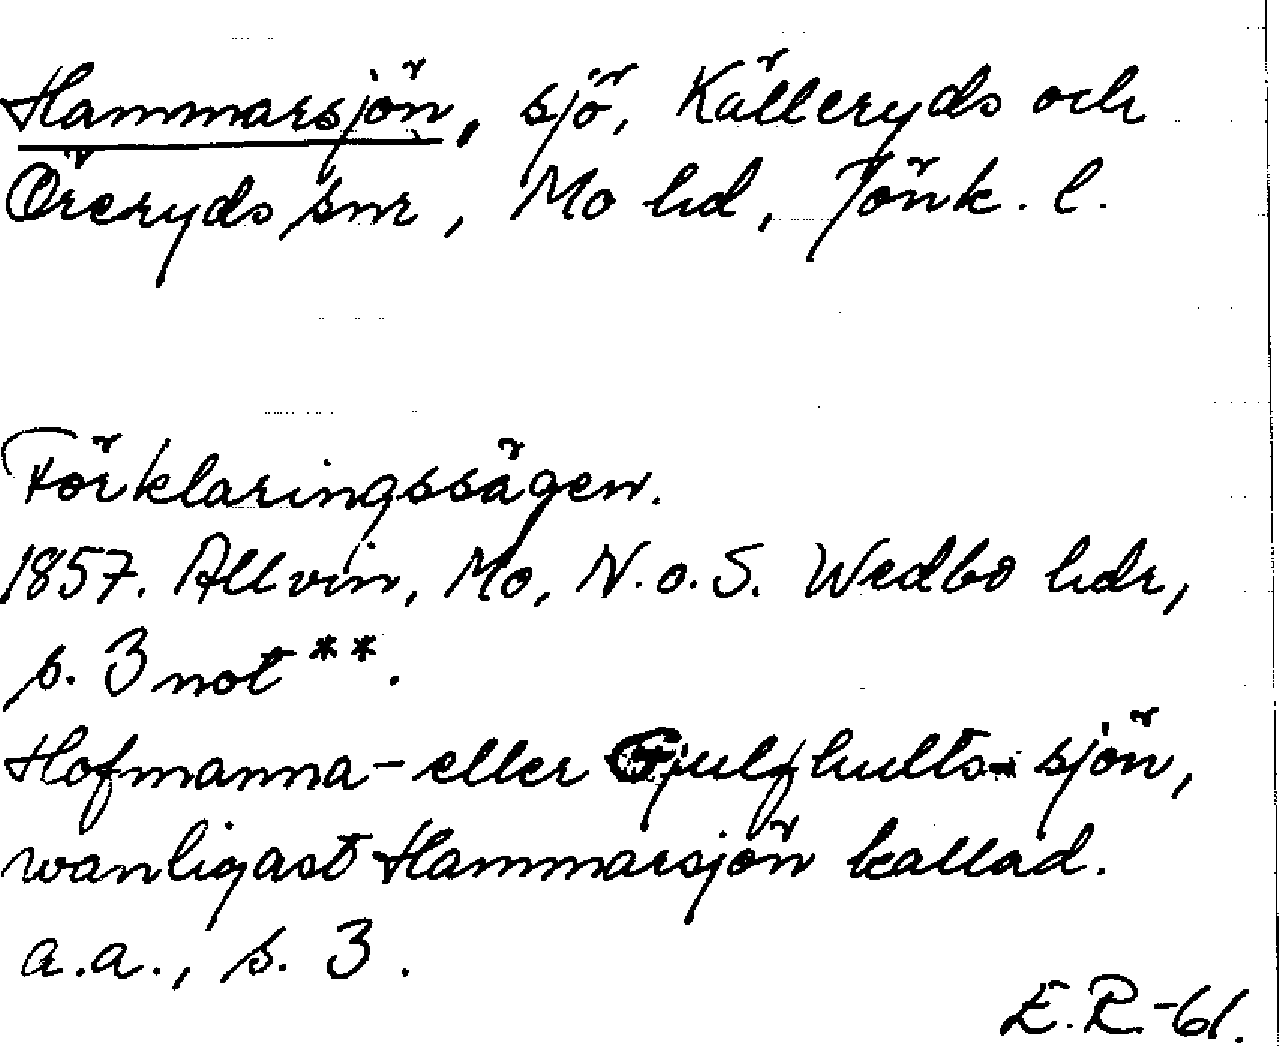 Hammarsjön, sjö, Källeryds och
Öreryds snr, Mo hd, Jönk. l.
Förklaringssägen.
1857. Allvin, Mo, N. o. S. Wedbo hdr,
s. 3 not **.
Hofmanna- eller Gjulfhults- sjön,
wanligast Hammarsjön kallad.
a.a., s. 3.
E.R.-61.